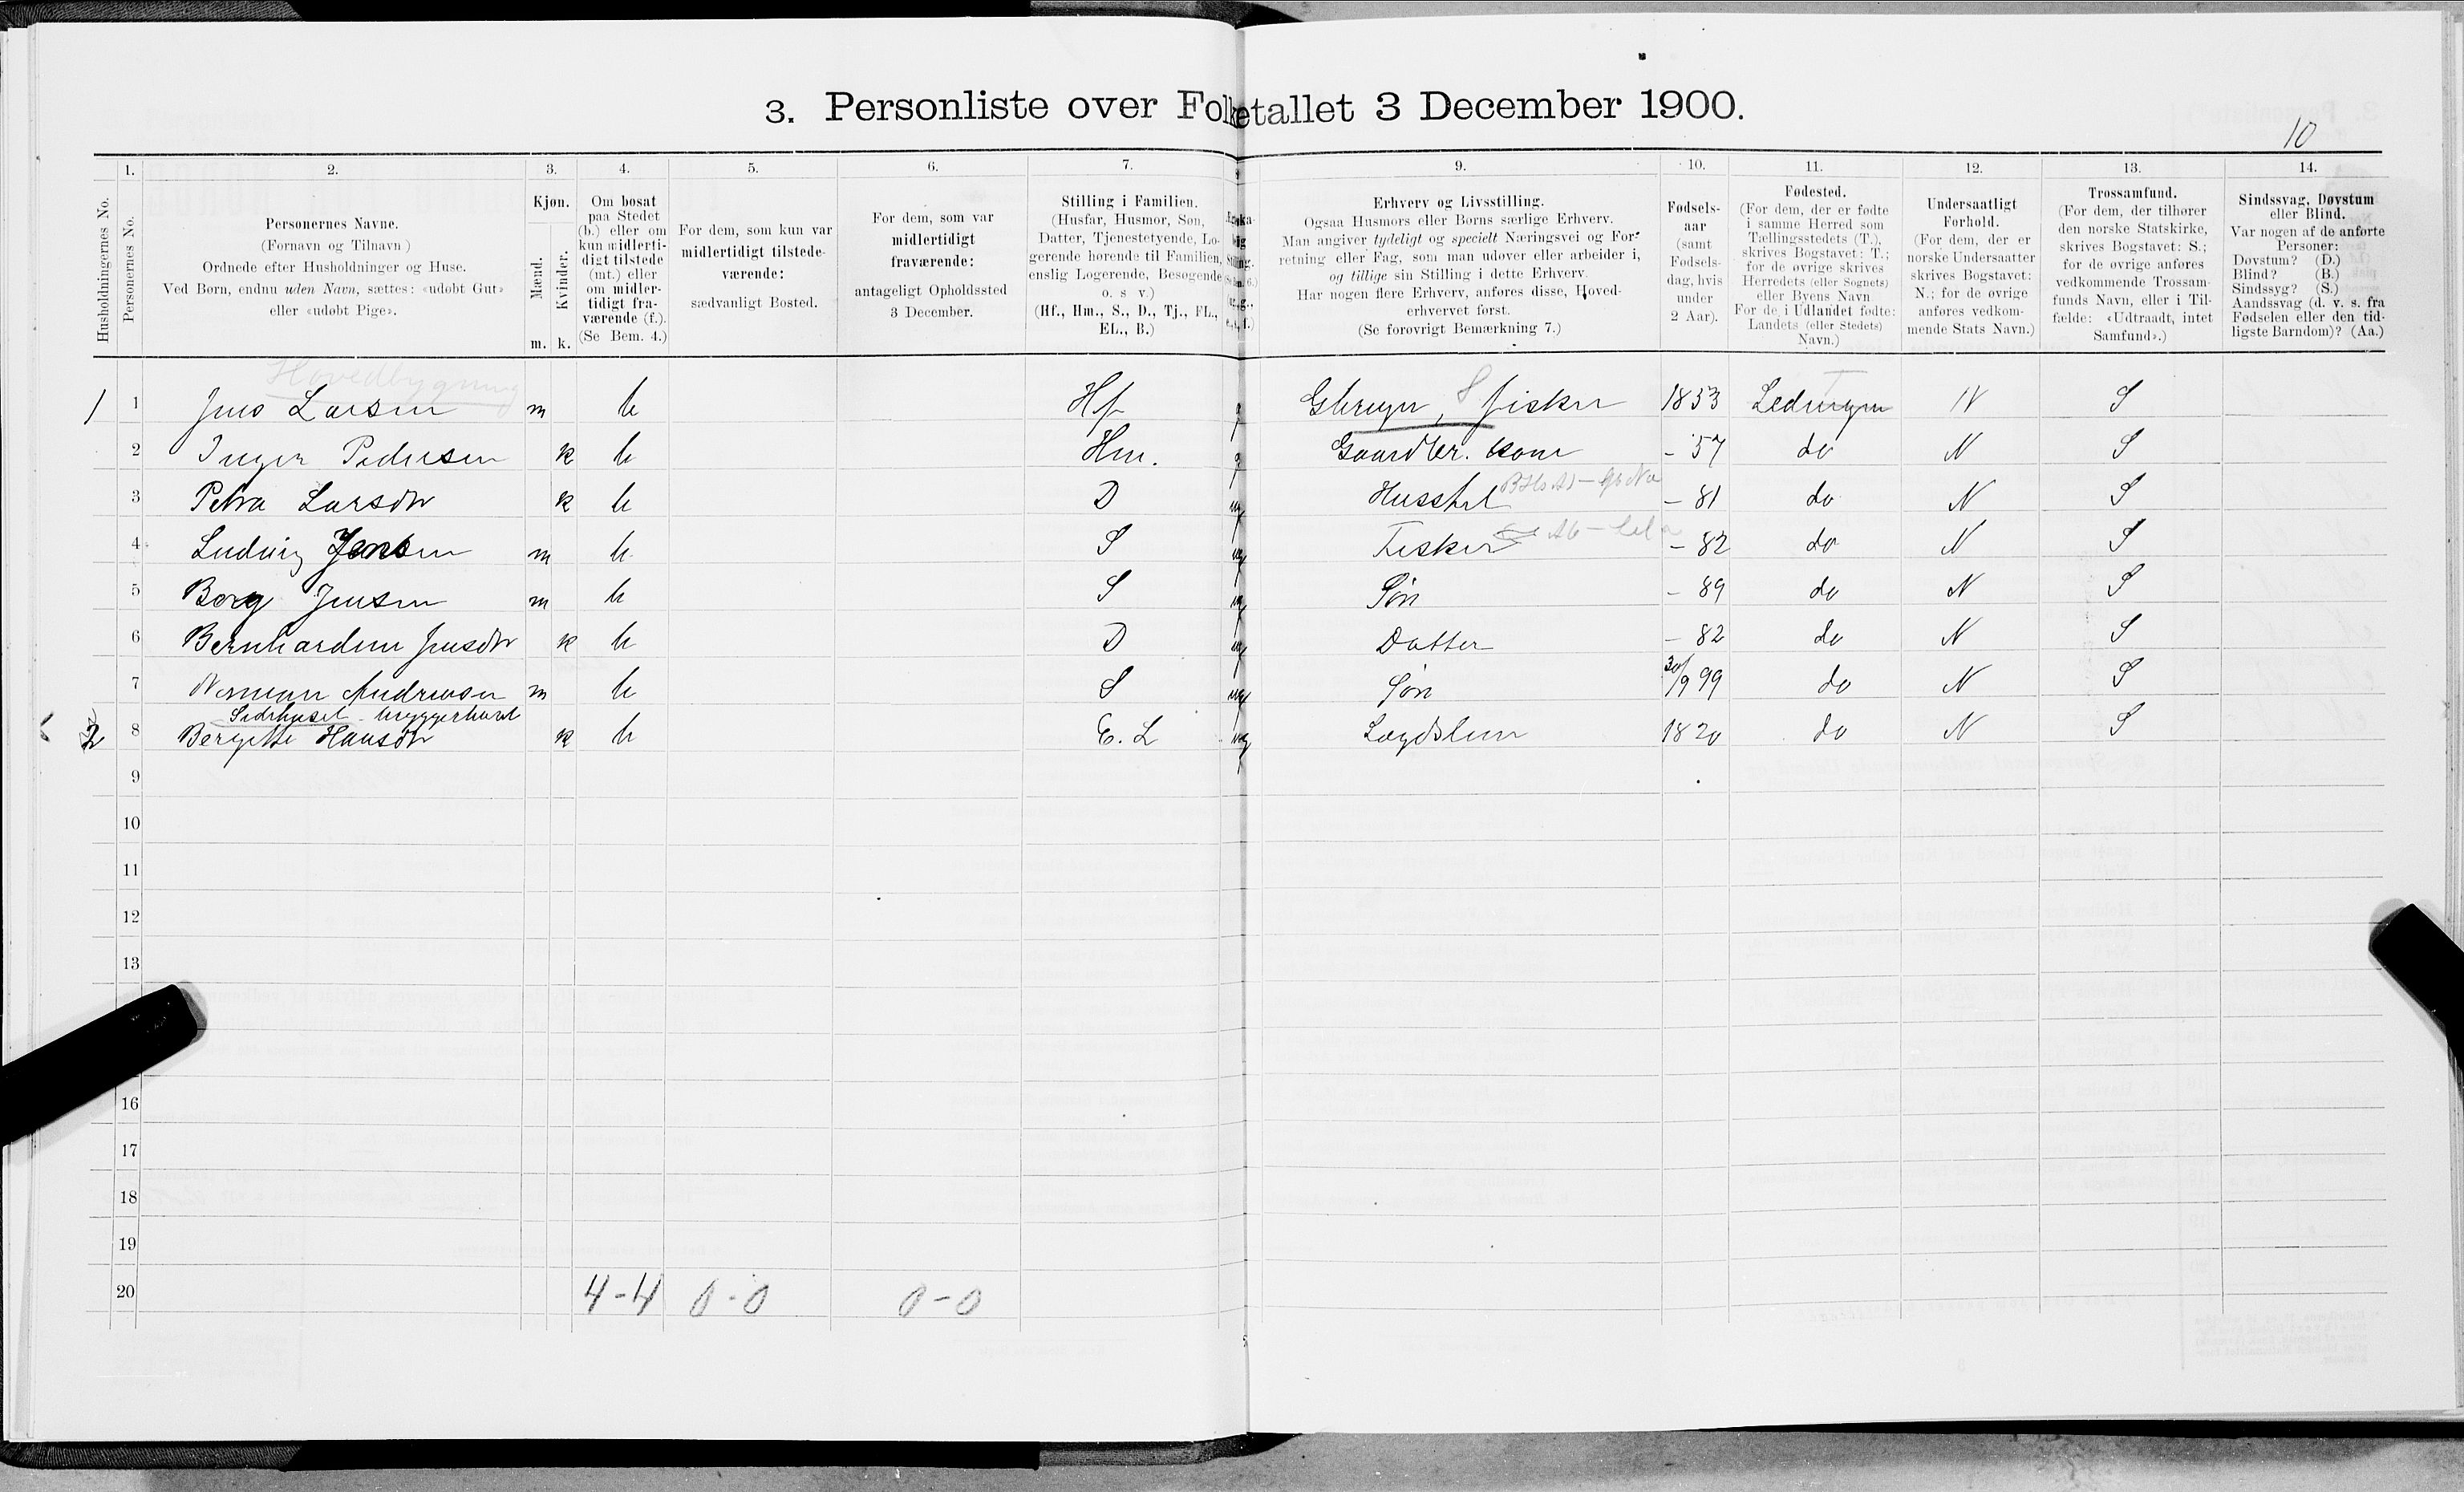 3. Personliste over Folketallet 3 December 1900.
10
1. 2. 3. 4. 5. 6. 7. 9. 10. 11. 12. 13. 14.
Husholdningernes No.
Personernes No.
Personernes Navne.
(Fornavn og Tilnavn.)
Ordnede efter Husholdninger og Huse.
Ved Børn, endnu uden Navn, sættes: «udøbt Gut»
eller «udøbt Pige».
Kjøn.
Mænd.
Kvinder.
m. k.
Om bosat
paa Stedet
(b.) eller om
kun midlerti-
digt tilstede
(mt.) eller
om midler-
tidigt fra-
værende (f.).
(Se Bem. 4.)
For dem, som kun var
midlertidigt tilstede-
værende:
sædvanligt Bosted.
For dem, som var
midlertidigt
fraværende:
antageligt Opholdssted
3 December.
Stilling i Familien.
(Husfar, Husmor, Søn,
Datter, Tjenestetyende, Lo-
gerende hørende til Familien,
enslig Logerende, Besøgende
o. s v.)
(Hf., Hm., S., D., Tj., FL.,
EL., B.)
Erhverv og Livsstilling.
Ogsaa Husmors eller Børns særlige Erhverv.
Man angiver tydeligt og specielt Næringsvei og For-
retning eller Fag, som man udøver eller arbeider i,
og tillige sin Stilling i dette Erhverv.
Har nogen flere Erhverv, anføres disse, Hoved-
erhvervet først.
(Se forøvrigt Bemærkning 7.)
Fødsels-
aar
(samt
Fødsels-
dag, hvis
under
2 Aar).
Fødested.
(For dem, der er fødte
i samme Herred som
Tællingsstedets (T.),
skrives Bogstavet: T.;
for de øvrige skrives
Herredets (eller Sognets)
eller Byens Navn.
For de i Udlandet fødte:
Landets (eller Stedets)
Navn.)
Undersaatligt
Forhold.
(For dem, der er
norske Undersaatter
skrives Bogstavet:
N.; for de øvrige
anføres vedkom-
mende Stats Navn.)
Trossamfund.
(For dem, der tilhører
den norske Statskirke,
skrives Bogstavet: S.;
for de øvrige anføres
vedkommende Trossam-
funds Navn, eller i Til-
fælde: «Udtraadt, intet
Samfund».)
Sindssvag, Døvstum
eller Blind.
Var nogen af de anførte
Personer:
Døvstum? (D.)
Blind? (B.)
Sindssyg? (S.)
Aandssvag (d. v. s. fra
Fødselen eller den tid-
ligste Barndom)? (Aa.)
Hovedbygning
1 1 Jens Larsen m b Hf g Gbruger, fisker 1853 Ledingen N S
2 Inger Pedersen k b Hm. g Gaardbr. kone - 57 do N S
3 Petra Larsdtr k b D ug Husstel - 81 do N S
4 Ludvig Jensen m b S ug Fisker - 82 do N S
5 Berg Jensen m b S ug Søn - 89 do N S
6 Bernhardine Jensdtr k b D ug Datter - 82 do N S
7 Norman Andreasen m b S ug Søn 30/9 99 do N S
Sidehuset - bryggerhuset
2 8 Bergitte Hansdtr k b E. L ug Lægdslem 1820 do N S
9
10
11
12
13
16
17
18
19
20 4-4 0-0 0-0